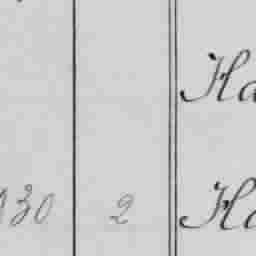 Ha
30 2 Ha